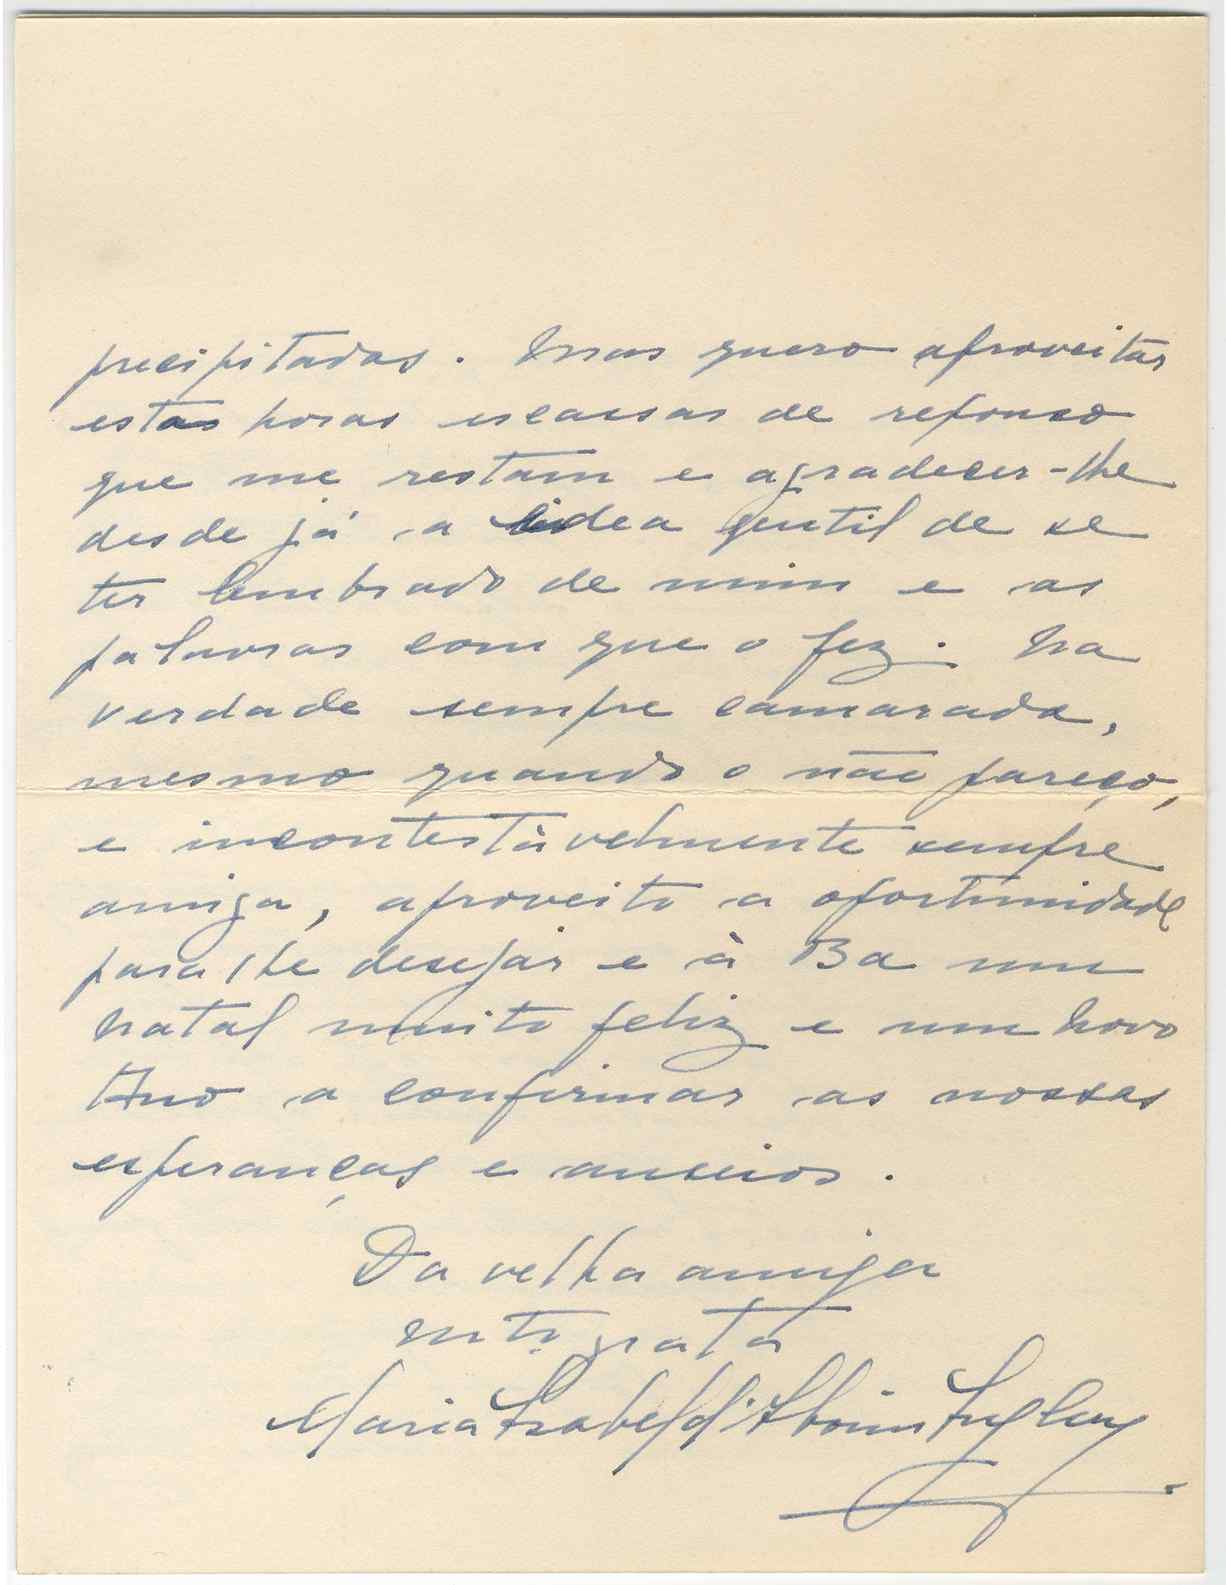 precipitadas. Mas quero aproveitar
estas horas escassas de repouso
que me restam e agradecer-lhe
desde já a idea gentil de se
ter lembrado de mim e as
palavras com que o fez. Na
verdade sempre camarada,
mesmo quando o não pareço,
e incontestàvelmente sempre
amiga, aproveito a oportunidade
para lhe desejar e à Ba um
Natal muito feliz e um Novo
Ano a confirmar as nossas
esperanças e anseios.
Da velha amiga
mto grata
Maria Isabel d'Aboim Inglez